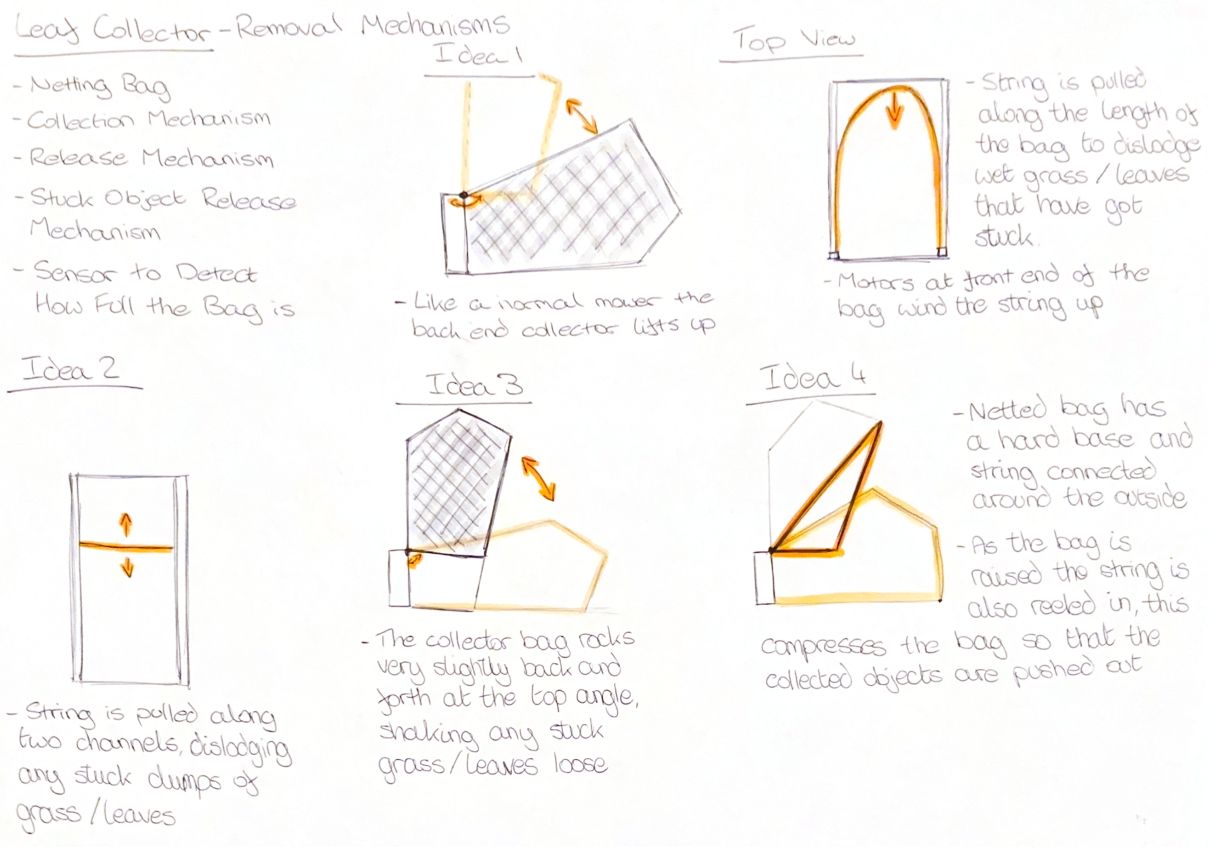 Leaf Collector - Removal Mechanisms
- Netting Bag
- Collection Mechanism
- Release Mechanism
- Stuck Object Release
Mechanism
- Sensor to Detect
How Full the Bag is
Idea 1
- Like a normal mower the
back end collector lifts up
Top View
- String is pulled
along the length of
the bag to dislodge
wet grass / leaves
that have got
stuck.
- Motors at front end of the
bag wind the string up
Idea 2
- String is pulled along
two channels, dislodging
any stuck clumps of
grass / leaves
Idea 3
- The collector bag rocks
very slightly back and
forth at the top angle,
shaking any stuck
grass / leaves loose
Idea 4
- Netted bag has
a hard base and
string connected
around the outside
- As the bag is
raised the string is
also reeled in, this
compresses the bag so that the
collected objects are pushed out